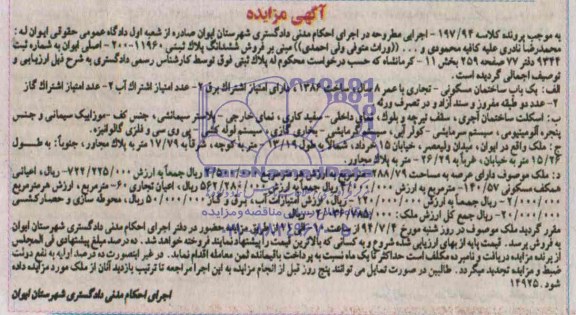 آگهی مزایده
به موجب پرونده کلاسه ۱۹۷/۹۴ - اجرایی مطروحه در اجرای احکام مدنی دادگستری شهرستان ایوان صادره از شعبه اول دادگاه عمومی حقوقی ایوان له :
محمدرضا نادری علیه کافیه محمودی و ... ((وراث متوفی ولی احمدی)) مبنی بر فروش ششدانگ پلاک ثبتی ۱۱۹۶۰-۲۰۰ - اصلی ایوان به شماره ثبت
۹۳۴۴ دفتر ۷۷ صفحه ۲۵۹ بخش ۱۱ - کرمانشاه که حسب درخواست محکوم له پلاک ثبتی فوق توسط کارشناس رسمی دادگستری به شرح ذیل ارزیابی و
توصیف اجمالی گردیده است.
الف: یک باب ساختمان مسکونی - تجاری با عمر ۸ سال، ساخت ۱۳۸۶، دارای امتیاز اشتراک برق ۲- عدد امتیاز اشتراک آب ۲- عدد امتیاز اشتراک گاز
۲- عدد دو طبقه مفروز و سند آزاد و در تصرف ورثه
ب: اسکلت ساختمان آجری، سقف تیرچه و بلوک، نمای داخلی- سفید کاری، نمای خارجی - پلاستر سیمانی، جنس کف -موزاییک سیمانی و جنس
پنجره آلومینیومی، سیستم سرمایشی - کولر آبی، سیستم گرمایشی - بخاری گازی، سیستم لوله کشی - پی وی سی و فلزی گالوانیزه.
ج: ملک واقع در ایوان، میدان ولیعصر، خیابان ۱۵ خرداد، شمالا به طول ۱۳/۱۹ - متر به کوچه، شرقاً به ۱۷/۷۹ متر به پلاک مجاور، جنوباً: به طول
۱۵/۲۶ متر به خیابان، غرباً به ۲۶/۲۹ - متر به پلاک مجاور.
د: ملک موصوف دارای عرصه به مساحت ۲۸۸/۷۹ مترمربع به ارزش هر مترمربع ۲/۵۰۰/۰۰۰ ریال جمعاً به ارزش ۷۲۲/۲۲۵/۰۰۰ - ریال، اعیانی
همکف مسکونی ۱۴۰/۵۷ - مترمربع به ارزش ۴/۰۰۰/۰۰۰ ریال جمعاً به ارزش ۵۶۲/۲۸۰/۰۰۰ ریال، اعیان تجاری ۶۰ - مترمربع، ارزش هر مترمربع
۲/۰۰۰/۰۰۰ - ریال جمعاً به ارزش ۱۲۰/۰۰۰/۰۰۰ - ریال، ارزش امتیازات آب، برق و گاز ۵۰/۰۰۰/۰۰۰ ریال، محوطه سازی و حصارکشی
ریال - جمع کل ارزش ملک:
مقرر گردید ملک موصوف در روز شنبه مورخ ۹۴/۷/۴ از ساعت مزایده حضوری در دفتر اجرای احکام مدنی دادگستری شهرستان ایوان
به فروش برسد. قیمت پایه از بهای ارزیابی شده شروع و به کسانی که بالاترین قیمت را پیشنهاد نمایند فروخته خواهد شد. ده درصد مبلغ پیشنهادی فی المجلس
از برنده مزایده دریافت و نامبرده مکلف است حداکثر تا یک ماه نسبت به پرداخت باقیمانده ثمن معامله اقدام نماید. در غیر اینصورت ده درصد اولیه به نفع دولت
ضبط و مزایده تجدید میگردد. طالبین در صورت تمایل می توانند پنج روز قبل از انجام مزایده به این اجرا مراجعه تا ترتیب بازدید آنان از ملک مورد مزایده داده
شود. ۱۴۹۲۵
اجرای احکام مدنی دادگستری شهرستان ایوان